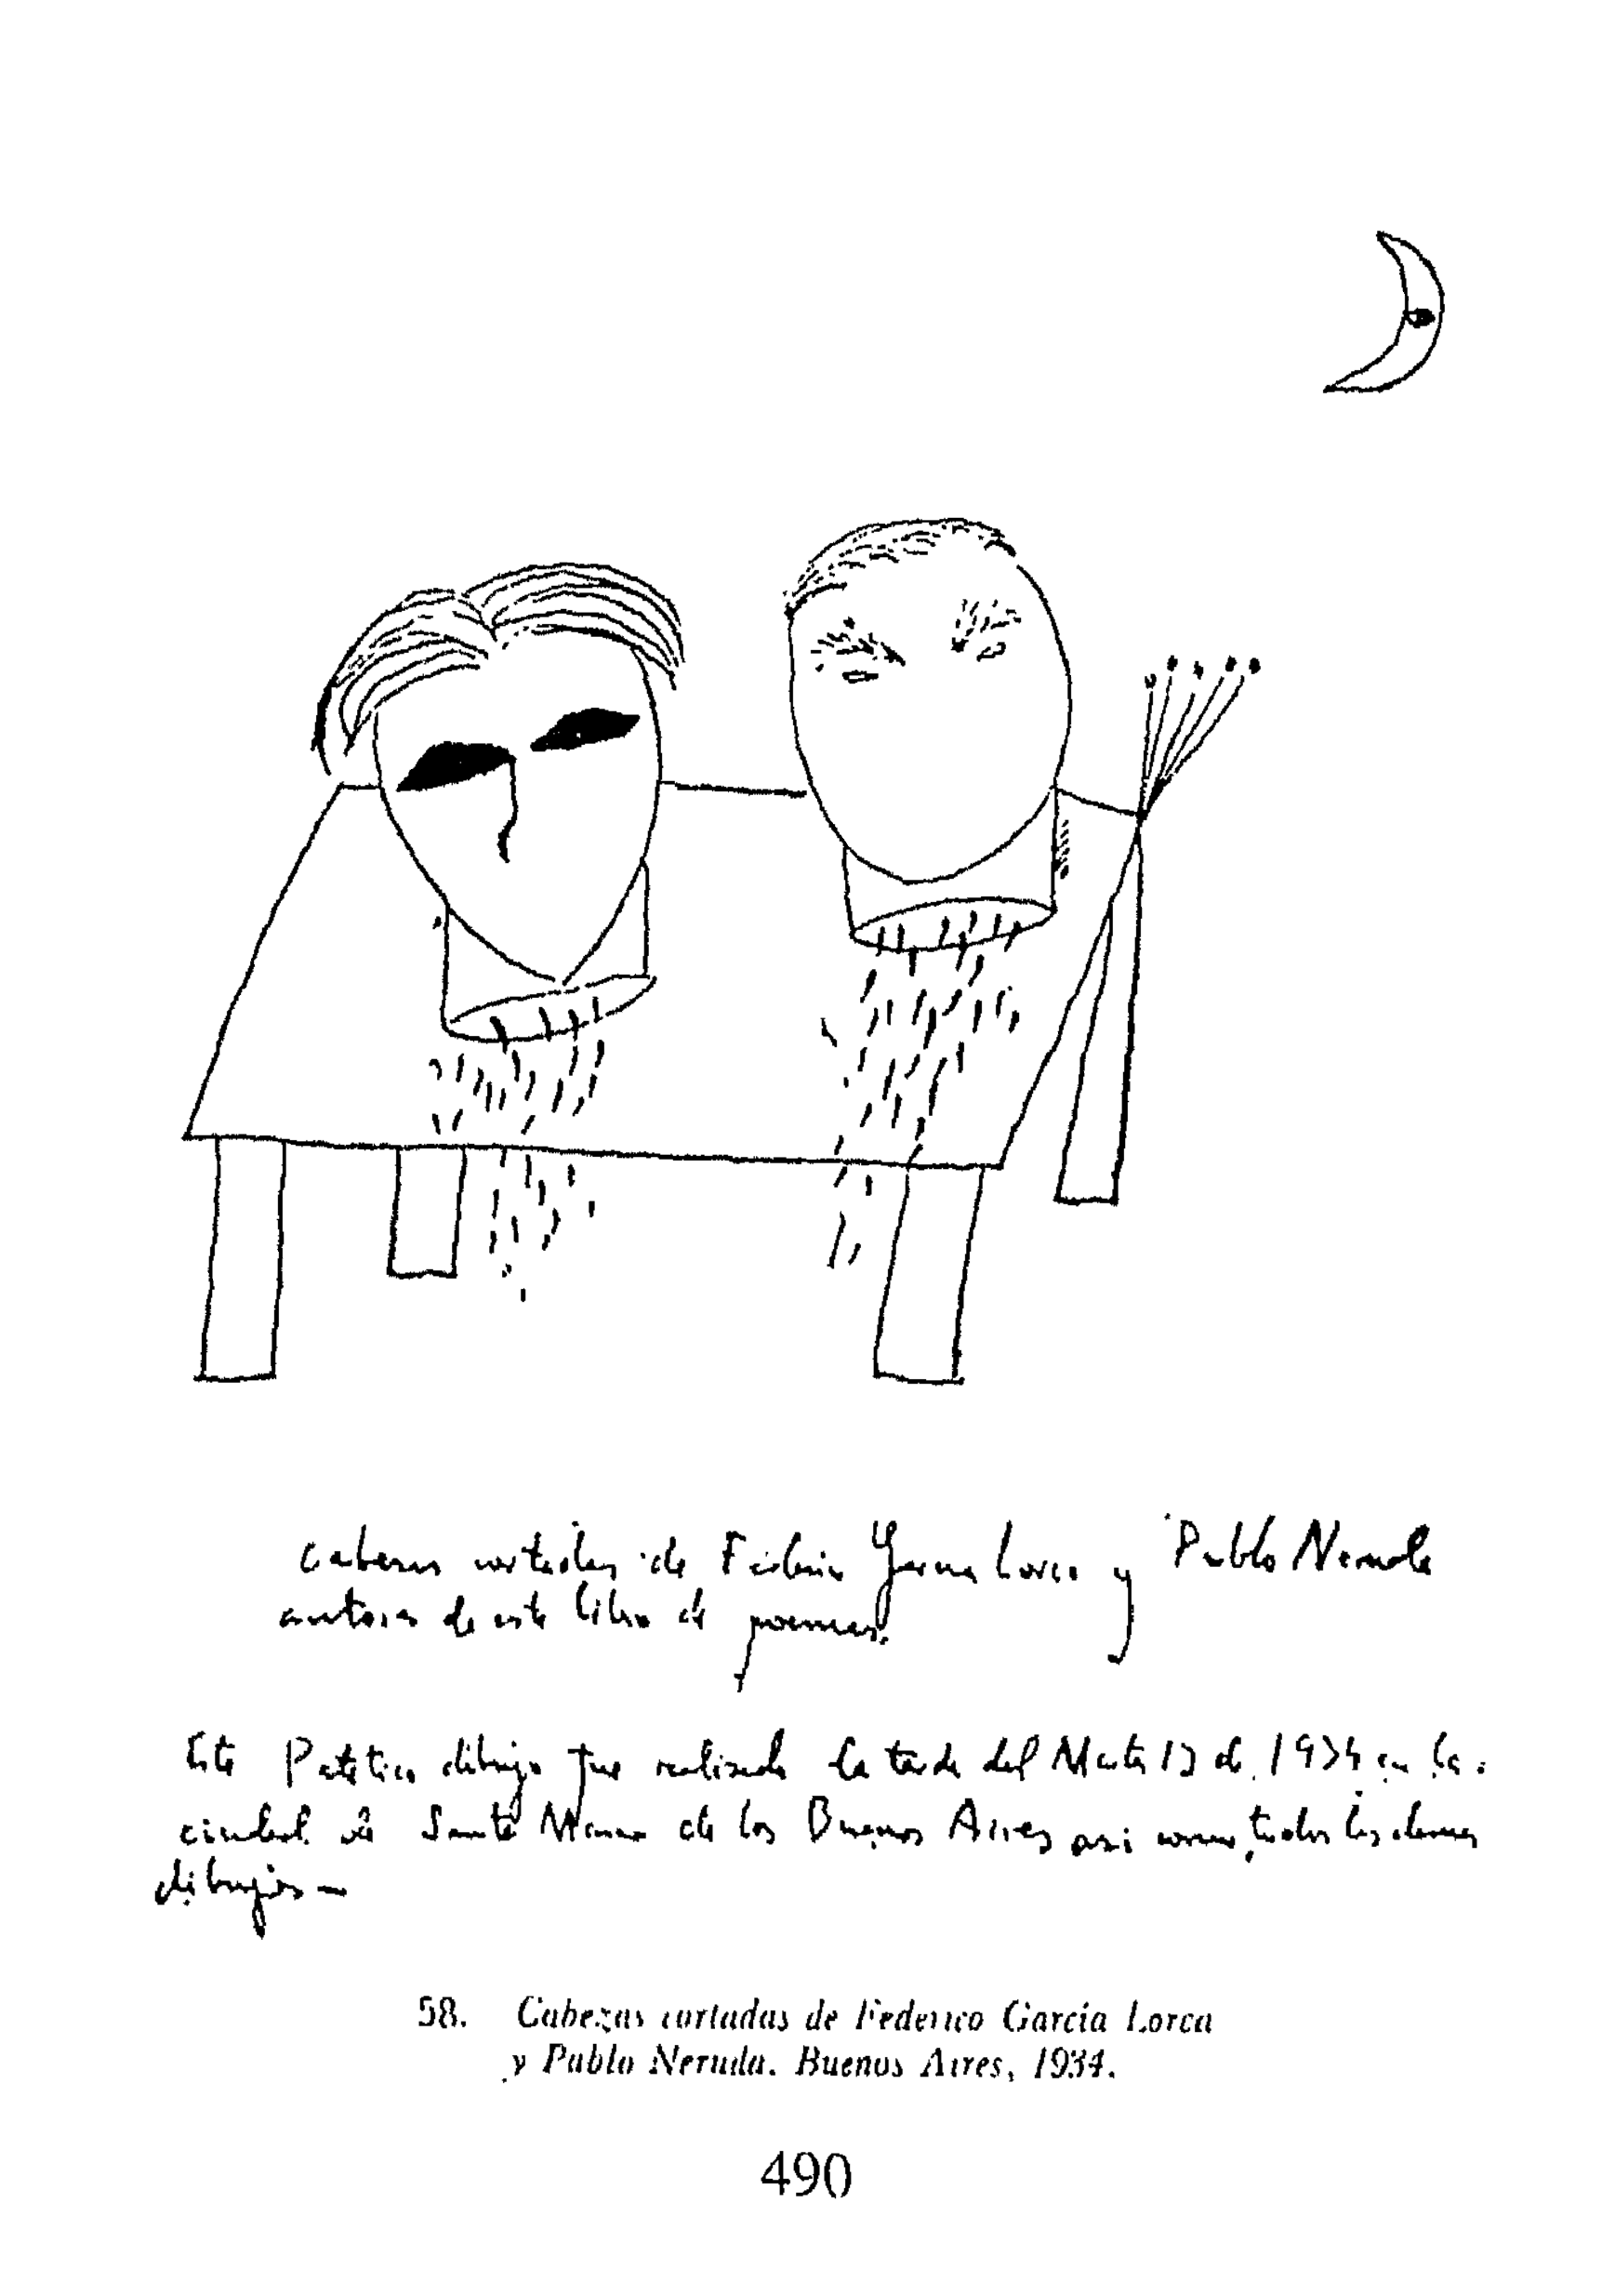 cabezas cortadas de Federico García Lorca y Pablo Neruda
autores de este libro de poemas.
Este Patetico dibujo fue realizado la tarde del Martes 13 de 1934 en la
ciudad de Santa Maria de los Buenos Aires asi como todos los demas
dibujos —
58. Cabezas cortadas de Federico García Lorca
y Pablo Neruda. Buenos Aires, 1934.
490